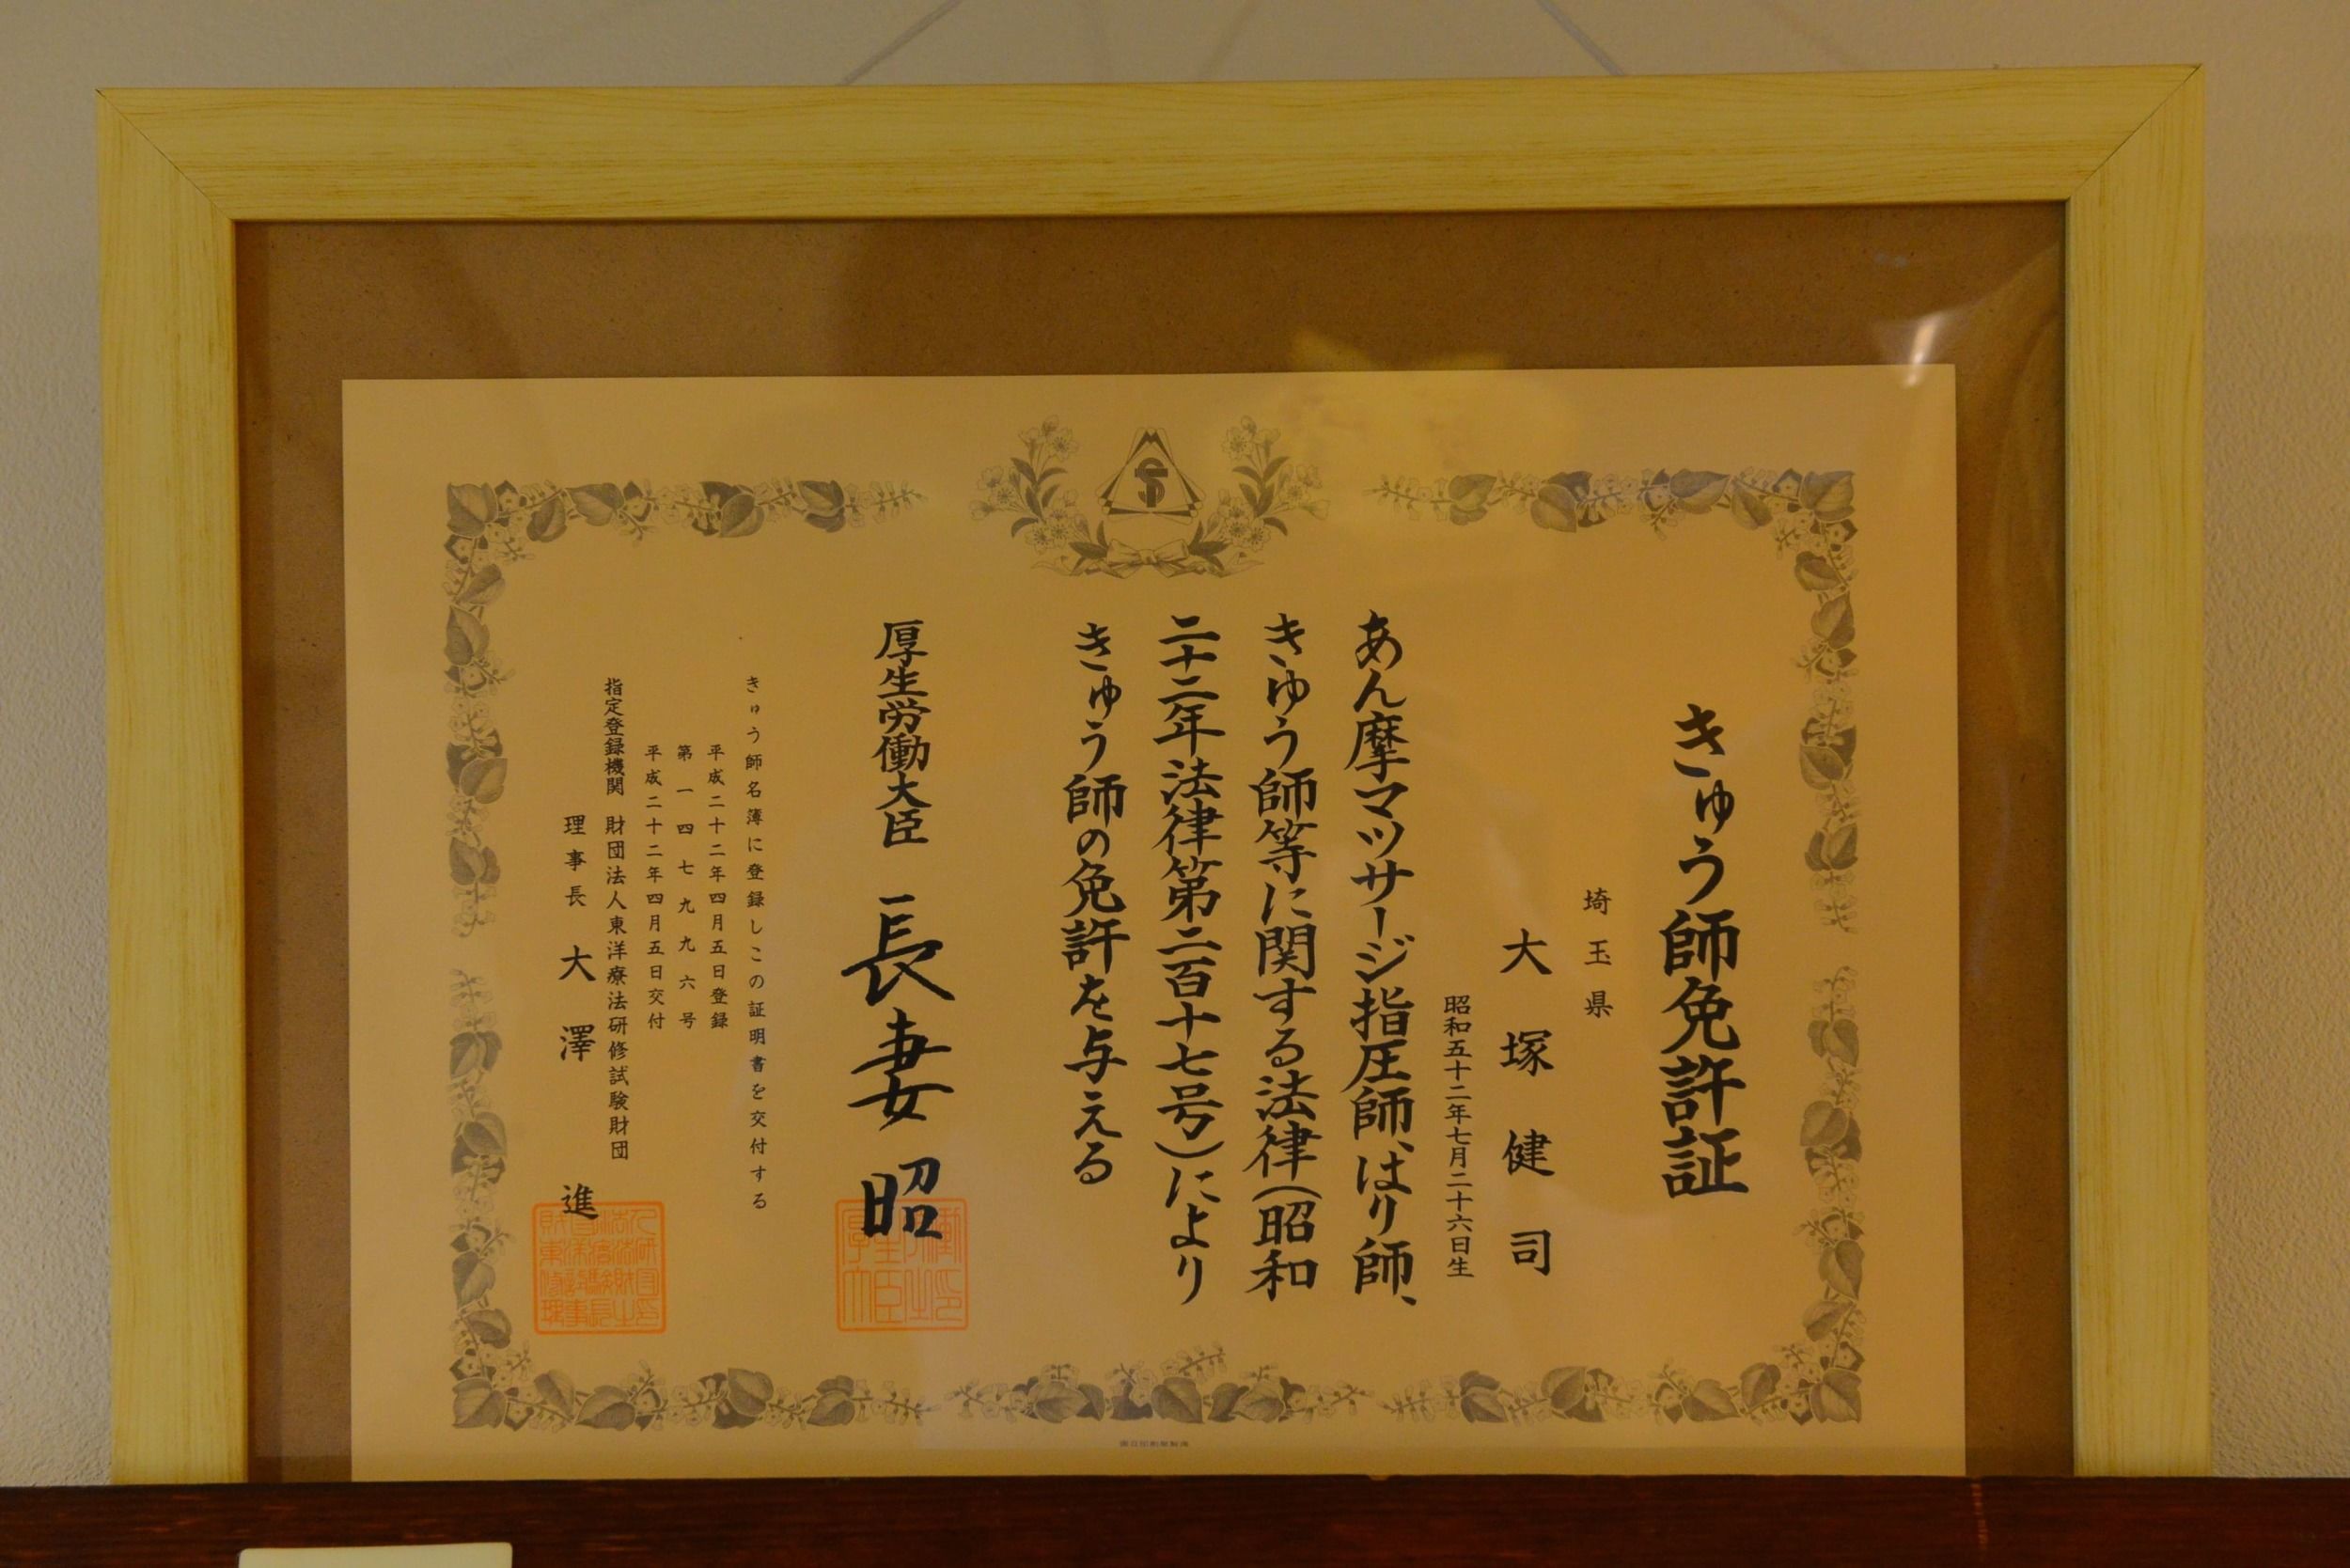 きゅう師免許証
埼玉県
大塚健司
昭和五十二年七月二十六日生
あん摩マツサージ指圧師、はり師、
きゆう師等に関する法律(昭和
二十二年法律第二百十七号)により
きゅう師の免許を与える
厚生労働大臣 長妻昭
きゅう師名簿に登録しこの証明書を交付する
平成二十二年四月五日登録
第一四七九九六号
平成二十二年四月五日交付
指定登録機関 財団法人東洋療法研修試験財団
理事長 大澤進